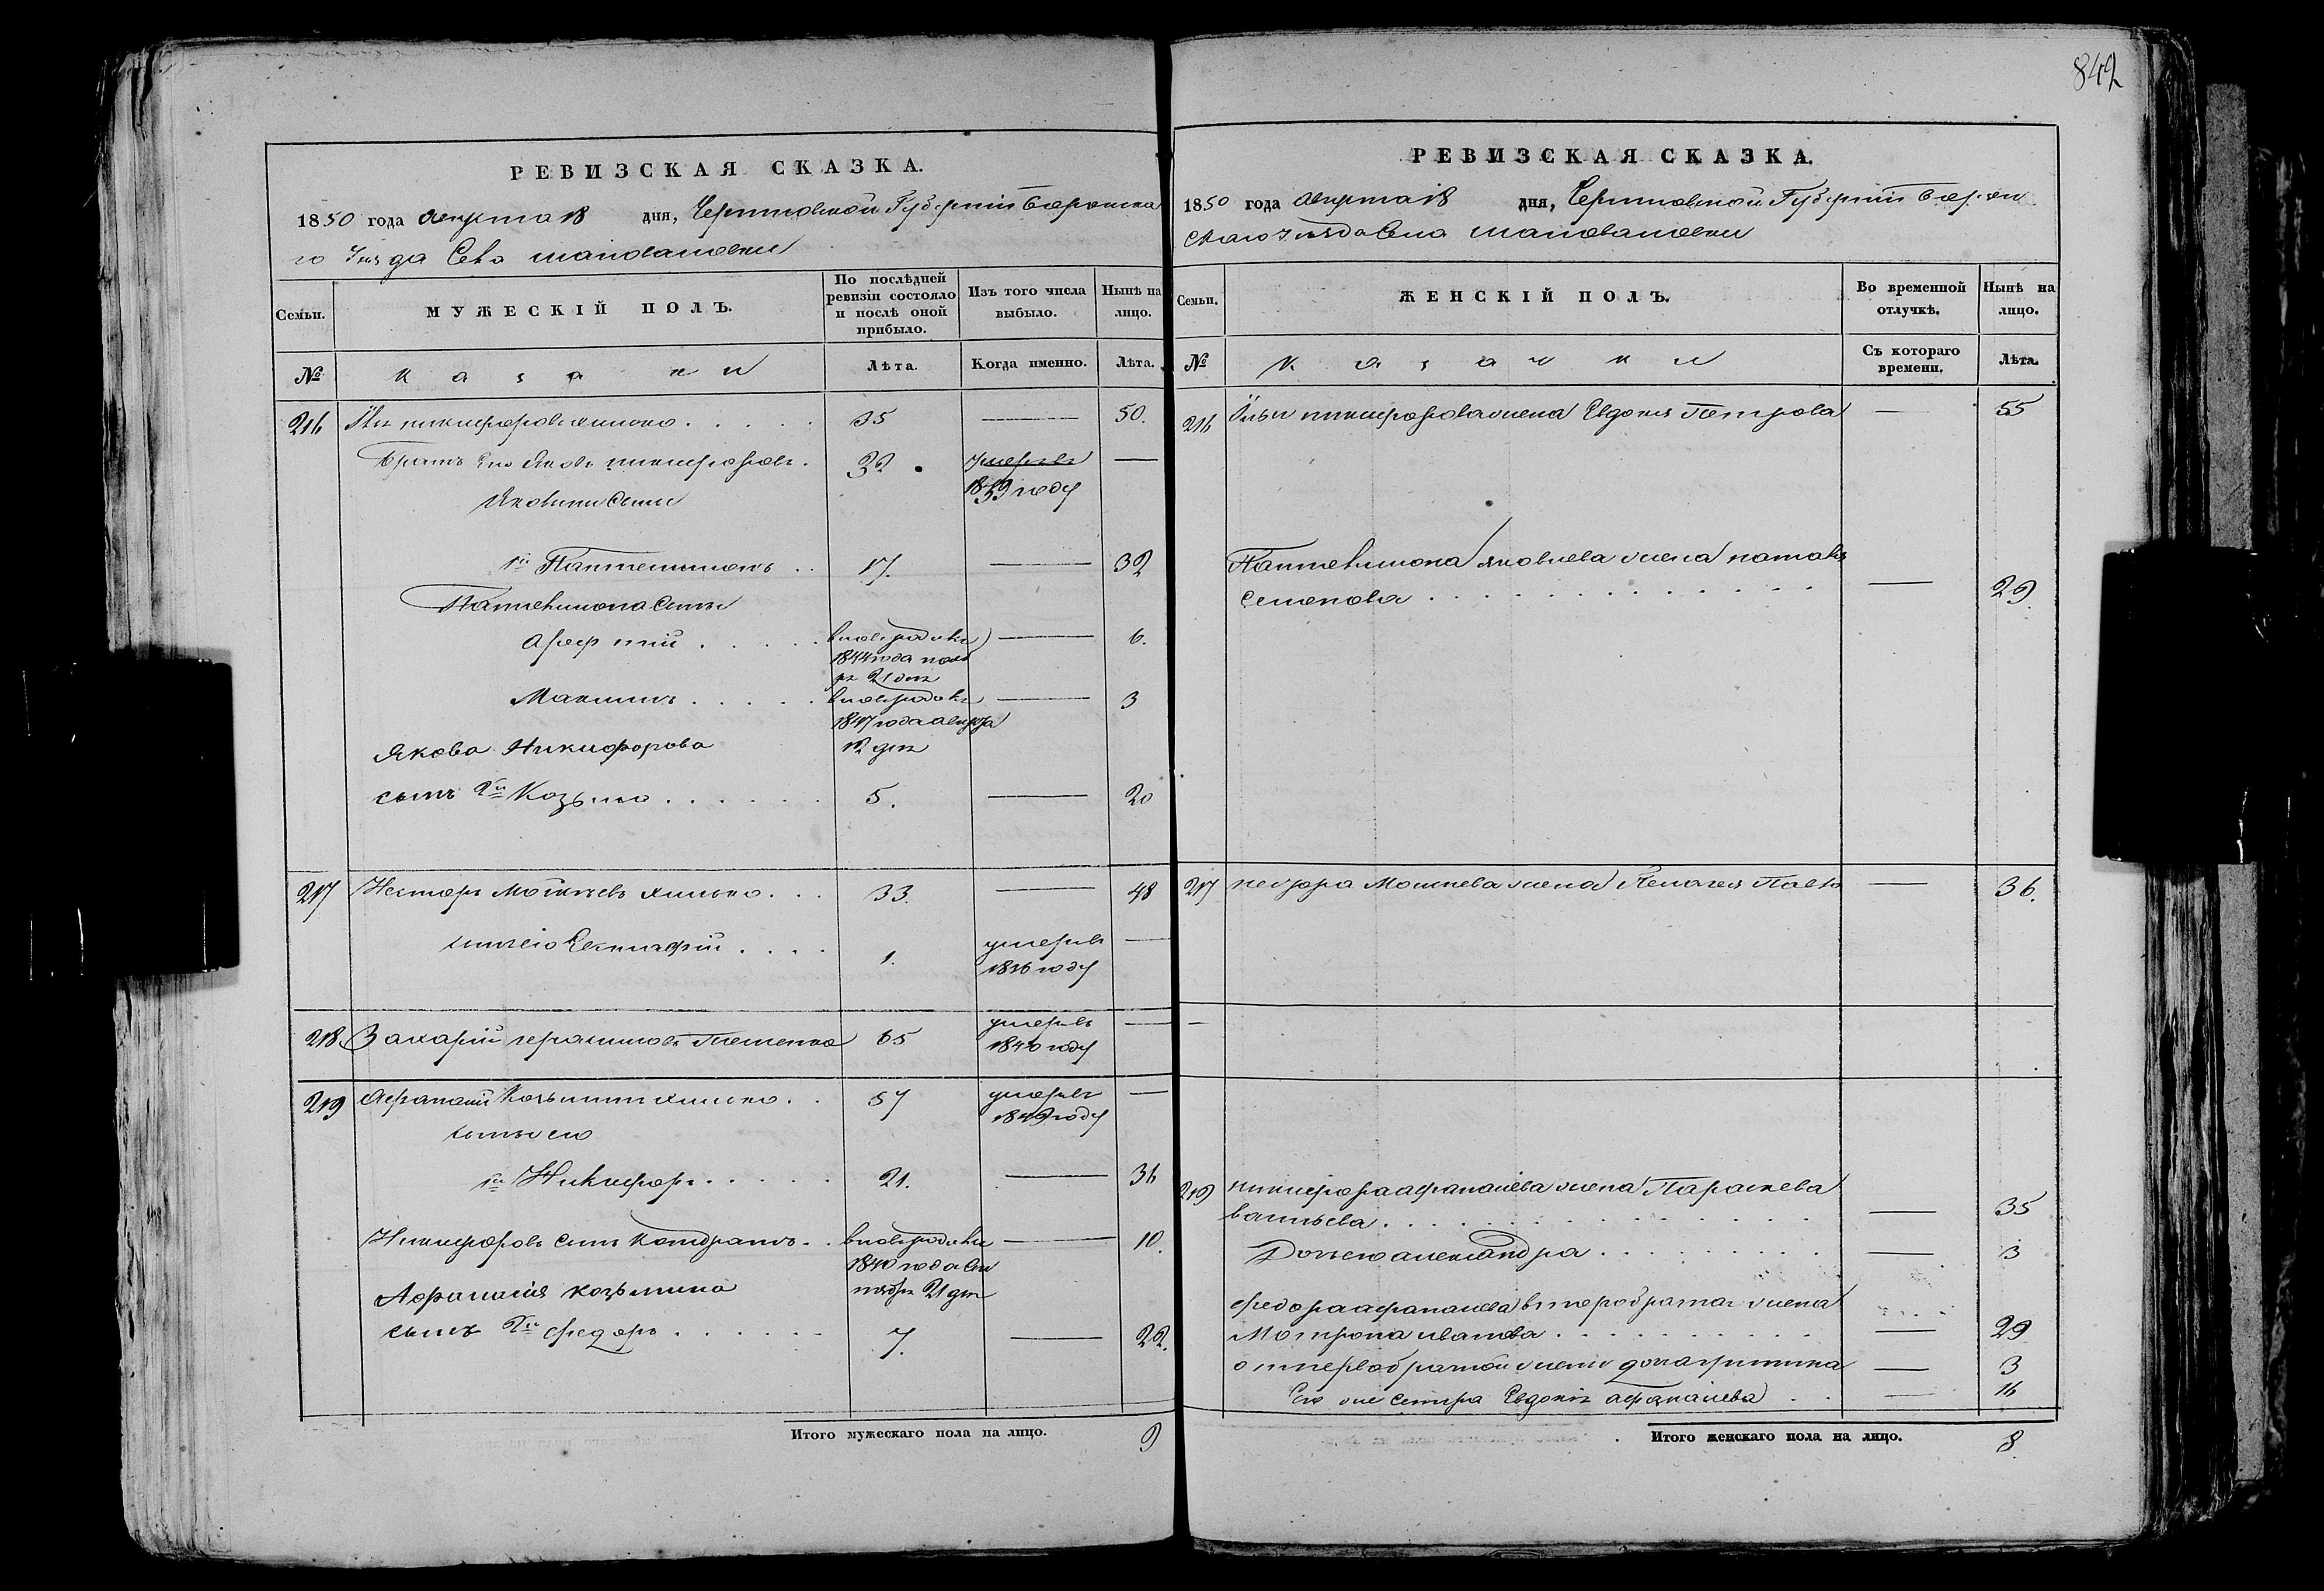 842
РЕВИЗСКАЯ СКАЗКА.
1850 года августа 18 дня, Черниговской Губерніи Борзенска
го Уѣзда Села
Семьи.
МУЖЕСКІЙ ПОЛЪ.
По послѣдней ревизіи состояло и послѣ оной прибыло.
Изъ того числа выбыло.
Нынѣ на лицо.
№
казаки
Лѣта.
Когда именно.
Лѣта.
216 никифоровъ хилько 35 — 50.
Братъ Его Яковъ никифоровъ. 32 умеръ 1839 году —
Яковини сыны
1й Пантелимонъ 17. — 32
Пантелимона сыны
Арефтий вновь родився 1844 года 21 дня — 6.
Максимъ вновь родився 1847 года 12 дня — 3
Якова Никифорова
сынъ 2й Козьма 5. — 20
217 Несторъ хилько 33. — 48
сынъ его 1. умеръ 1836 году —
218. Захарій герасимовъ 65 умеръ 1840 году —
219 Афанасій Козьминъ хилько 57 умеръ 1849 году —
сыны его
1й Никифоръ 21. — 36
Никифоровъ сынъ Кондратъ вновь родився 1840 года Сентября 21 дня — 10.
Афанасія козьмина
сынъ 2й федоръ 7. — 22.
Итого мужескаго пола на лицо. 9
РЕВИЗСКАЯ СКАЗКА.
1850 года августа 18 дня, Черниговской Губерніи Борзен
скаго уѣзда Села
Семьи.
ЖЕНСКІЙ ПОЛЪ.
Во временной отлучкѣ.
Нынѣ на лицо.
№
казачки
Съ котораго времени.
Лѣта.
216 никифорова жена Евдокія Петрова — 55
Пантелимона яковлева жена наталія
семенова — 29.
217 нестора жена Пелагея — 36.
—
219 никифора афанасіева жена Параскева
васильева — 35
Дочь его александра — 3
федора афанасіева второбратная жена
Мотрона иванова — 29
от первобратной жены дочь — 3
Его же сестра Евдокія афанасіева — 16
Итого женскаго пола на лицо. 8